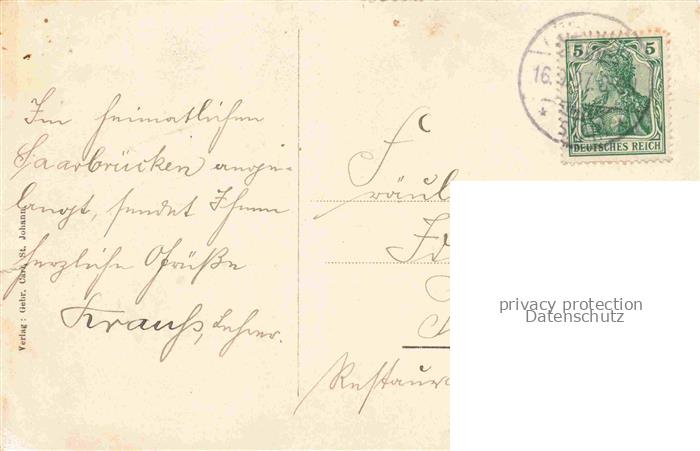 Im heimatlichen
Saarbrücken ange-
langt, sendet Ihnen
herzliche Grüße
Krauß, Lehrer.
Verlag: Gebr. Carl, St. Johann.
Fräul
Restaur
5 5
DEUTSCHES REICH
16.9.
privacy protection
Datenschutz